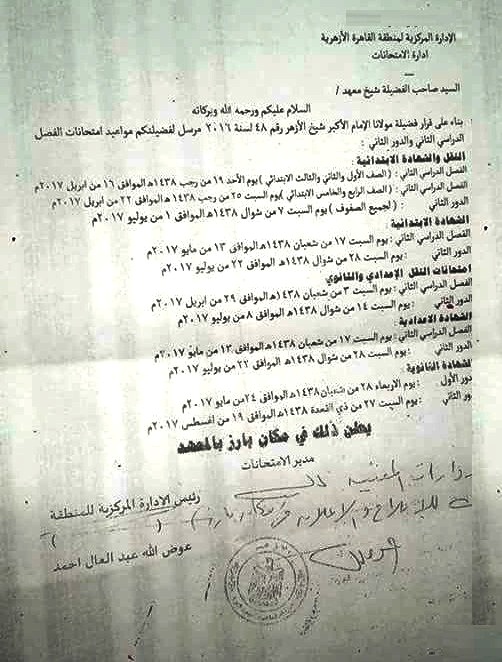 الإدارة المركزية لمنطقة القاهرة الأزهرية
ادارة الامتحانات
السيد صاحب الفضيلة شيخ معهد /
السلام عليكم ورحمه الله وبركاته
بناء على قرار فضيلة مولانا الإمام الأكبر شيخ الأزهر رقم ٤٨ لسنة ٢٠١٦ مرسل لفضيلتكم مواعيد امتحانات الفصل
الدراسي الثاني والدور الثاني :
النقل والشهادة الابتدائية :
الفصل الدراسي الثاني : ( الصف الأول والثاني والثالث الابتدائي ) يوم الأحد ١٩ من رجب ١٤٣٨هـ الموافق ١٦ من ابريل ٢٠١٧م
الفصل الدراسي الثاني : ( الصف الرابع والخامس الابتدائي ) يوم السبت ٢٥ من رجب ١٤٣٨هـ الموافق ٢٢ من ابريل ٢٠١٧م
الدور الثاني : ( لجميع الصفوف ) يوم السبت ٧ من شوال ١٤٣٨هـ الموافق ١ من يوليو ٢٠١٧م
الشهادة الابتدائية :
الفصل الدراسي الثاني : يوم السبت ١٧ من شعبان ١٤٣٨هـ الموافق ١٣ من مايو ٢٠١٧م
الدور الثاني : يوم السبت ٢٨ من شوال ١٤٣٨هـ الموافق ٢٢ من يوليو ٢٠١٧م
امتحانات النقل الإعدادي والثانوي
الفصل الدراسي الثاني : يوم السبت ٣ من شعبان ١٤٣٨هـ الموافق ٢٩ من ابريل ٢٠١٧م
الدور الثاني : يوم السبت ١٤ من شوال ١٤٣٨هـ الموافق ٨ من يوليو ٢٠١٧م
الشهادة الإعدادية :
الفصل الدراسي الثاني : يوم السبت ١٧ من شعبان ١٤٣٨هـ الموافق ١٣ من مايو ٢٠١٧م
الدور الثاني : يوم السبت ٢٨ من شوال ١٤٣٨هـ الموافق ٢٢ من يوليو ٢٠١٧م
الشهادة الثانوية :
دور الأول : يوم الاربعاء ٢٨ من شعبان ١٤٣٨هـ الموافق ٢٤ من مايو ٢٠١٧م
ور الثاني : يوم السبت ٢٧ من ذي القعدة ١٤٣٨هـ الموافق ١٩ من اغسطس ٢٠١٧م
يعلن ذلك في مكان بارز بالمعهد
مدير الامتحانات
رئيس الادارة المركزية للمنطقة
( )
عوض الله عبد العال احمد